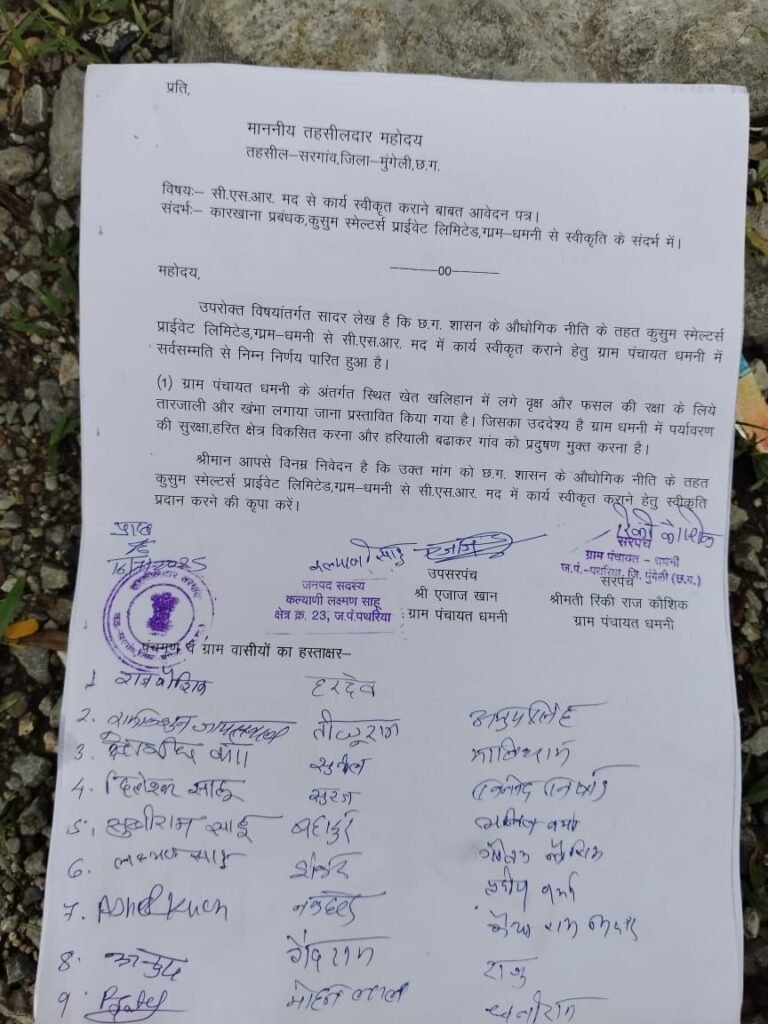 प्रति,
माननीय तहसीलदार महोदय
तहसील–सरगांव,जिला–मुंगेली,छ.ग.
विषयः– सी.एस.आर. मद से कार्य स्वीकृत कराने बाबत आवेदन पत्र।
संदर्भः– कारखाना प्रबंधक,कुसुम स्मेल्टर्स प्राईवेट लिमिटेड,ग्राम–धमनी से स्वीकृति के संदर्भ में।
महोदय,
–––––00–––––
उपरोक्त विषयांतर्गत सादर लेख है कि छ.ग. शासन के औधोगिक नीति के तहत कुसुम स्मेल्टर्स
प्राईवेट लिमिटेड,ग्राम–धमनी से सी.एस.आर. मद में कार्य स्वीकृत कराने हेतु ग्राम पंचायत धमनी में
सर्वसम्मति से निम्न निर्णय पारित हुआ है।
(1) ग्राम पंचायत धमनी के अंतर्गत स्थित खेत खलिहान में लगे वृक्ष और फसल की रक्षा के लिये
तारजाली और खंभा लगाया जाना प्रस्तावित किया गया है। जिसका उददेश्य है ग्राम धमनी में पर्यावरण
की सुरक्षा,हरित क्षेत्र विकसित करना और हरियाली बढाकर गांव को प्रदुषण मुक्त करना है।
श्रीमान आपसे विनम्र निवेदन है कि उक्त मांग को छ.ग. शासन के औधोगिक नीति के तहत
कुसुम स्मेल्टर्स प्राईवेट लिमिटेड,ग्राम–धमनी से सी.एस.आर. मद में कार्य स्वीकृत कराने हेतु स्वीकृति
प्रदान करने की कृपा करें।
प्राप्त
कल्याणी साहू
रिंकी कौशिक
जनपद सदस्य
कल्याणी लक्ष्मण साहू
क्षेत्र क्र. 23, ज.पं.पथरिया
उपसरपंच
श्री एजाज खान
ग्राम पंचायत धमनी
सरपंच
ग्राम पंचायत - धमनी
ज.पं.-पथरिया, जि. मुंगेली (छ.ग.)
सरपंच
श्रीमती रिंकी राज कौशिक
ग्राम पंचायत धमनी
पंचगण व ग्राम वासीयों का हस्ताक्षर–
1 राजकौशिक हरदेव
2. रामकिशुन जायसवाल तीजूराम
3. सुनील
4. दिलेश्वर साहू सुरज
5. सुखीराम साहू बहादुर
6. लक्ष्मण साहू शंकर गौतम कौशिक
7. प्रदीप वर्मा
8. गैंदराम राजु
9. मोहन लाल